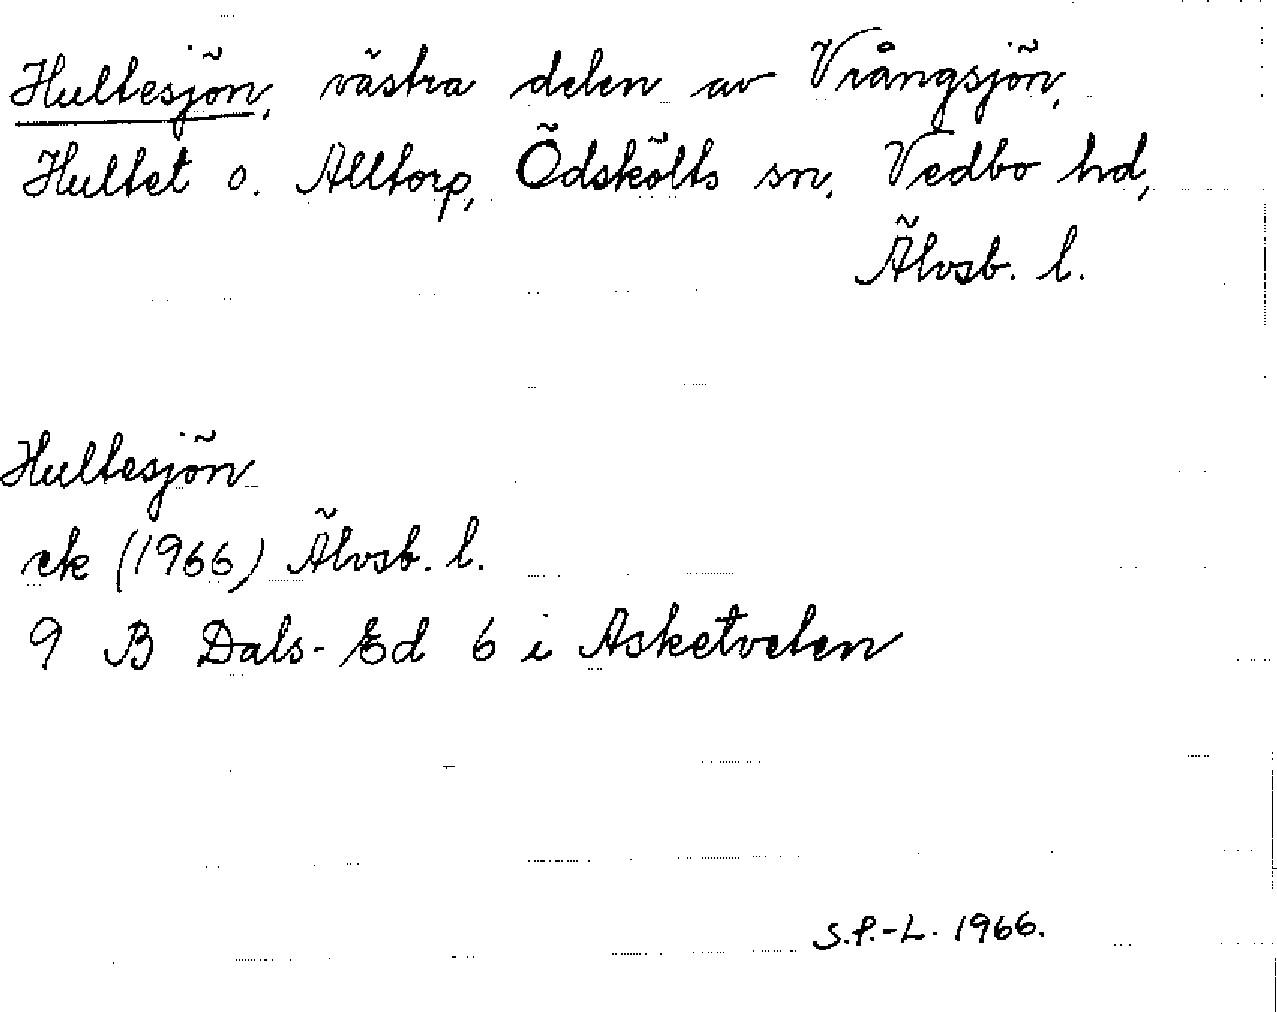 Hultesjön, västra delen av Vrångsjön,
Hultet o. Alltorp, Ödskölts sn, Vedbo hd,
Älvsb. l.
Hultesjön
ek (1966) Älvsb. l.
9 B Dals-Ed 6 i Asketveten
S.P.-L. 1966.